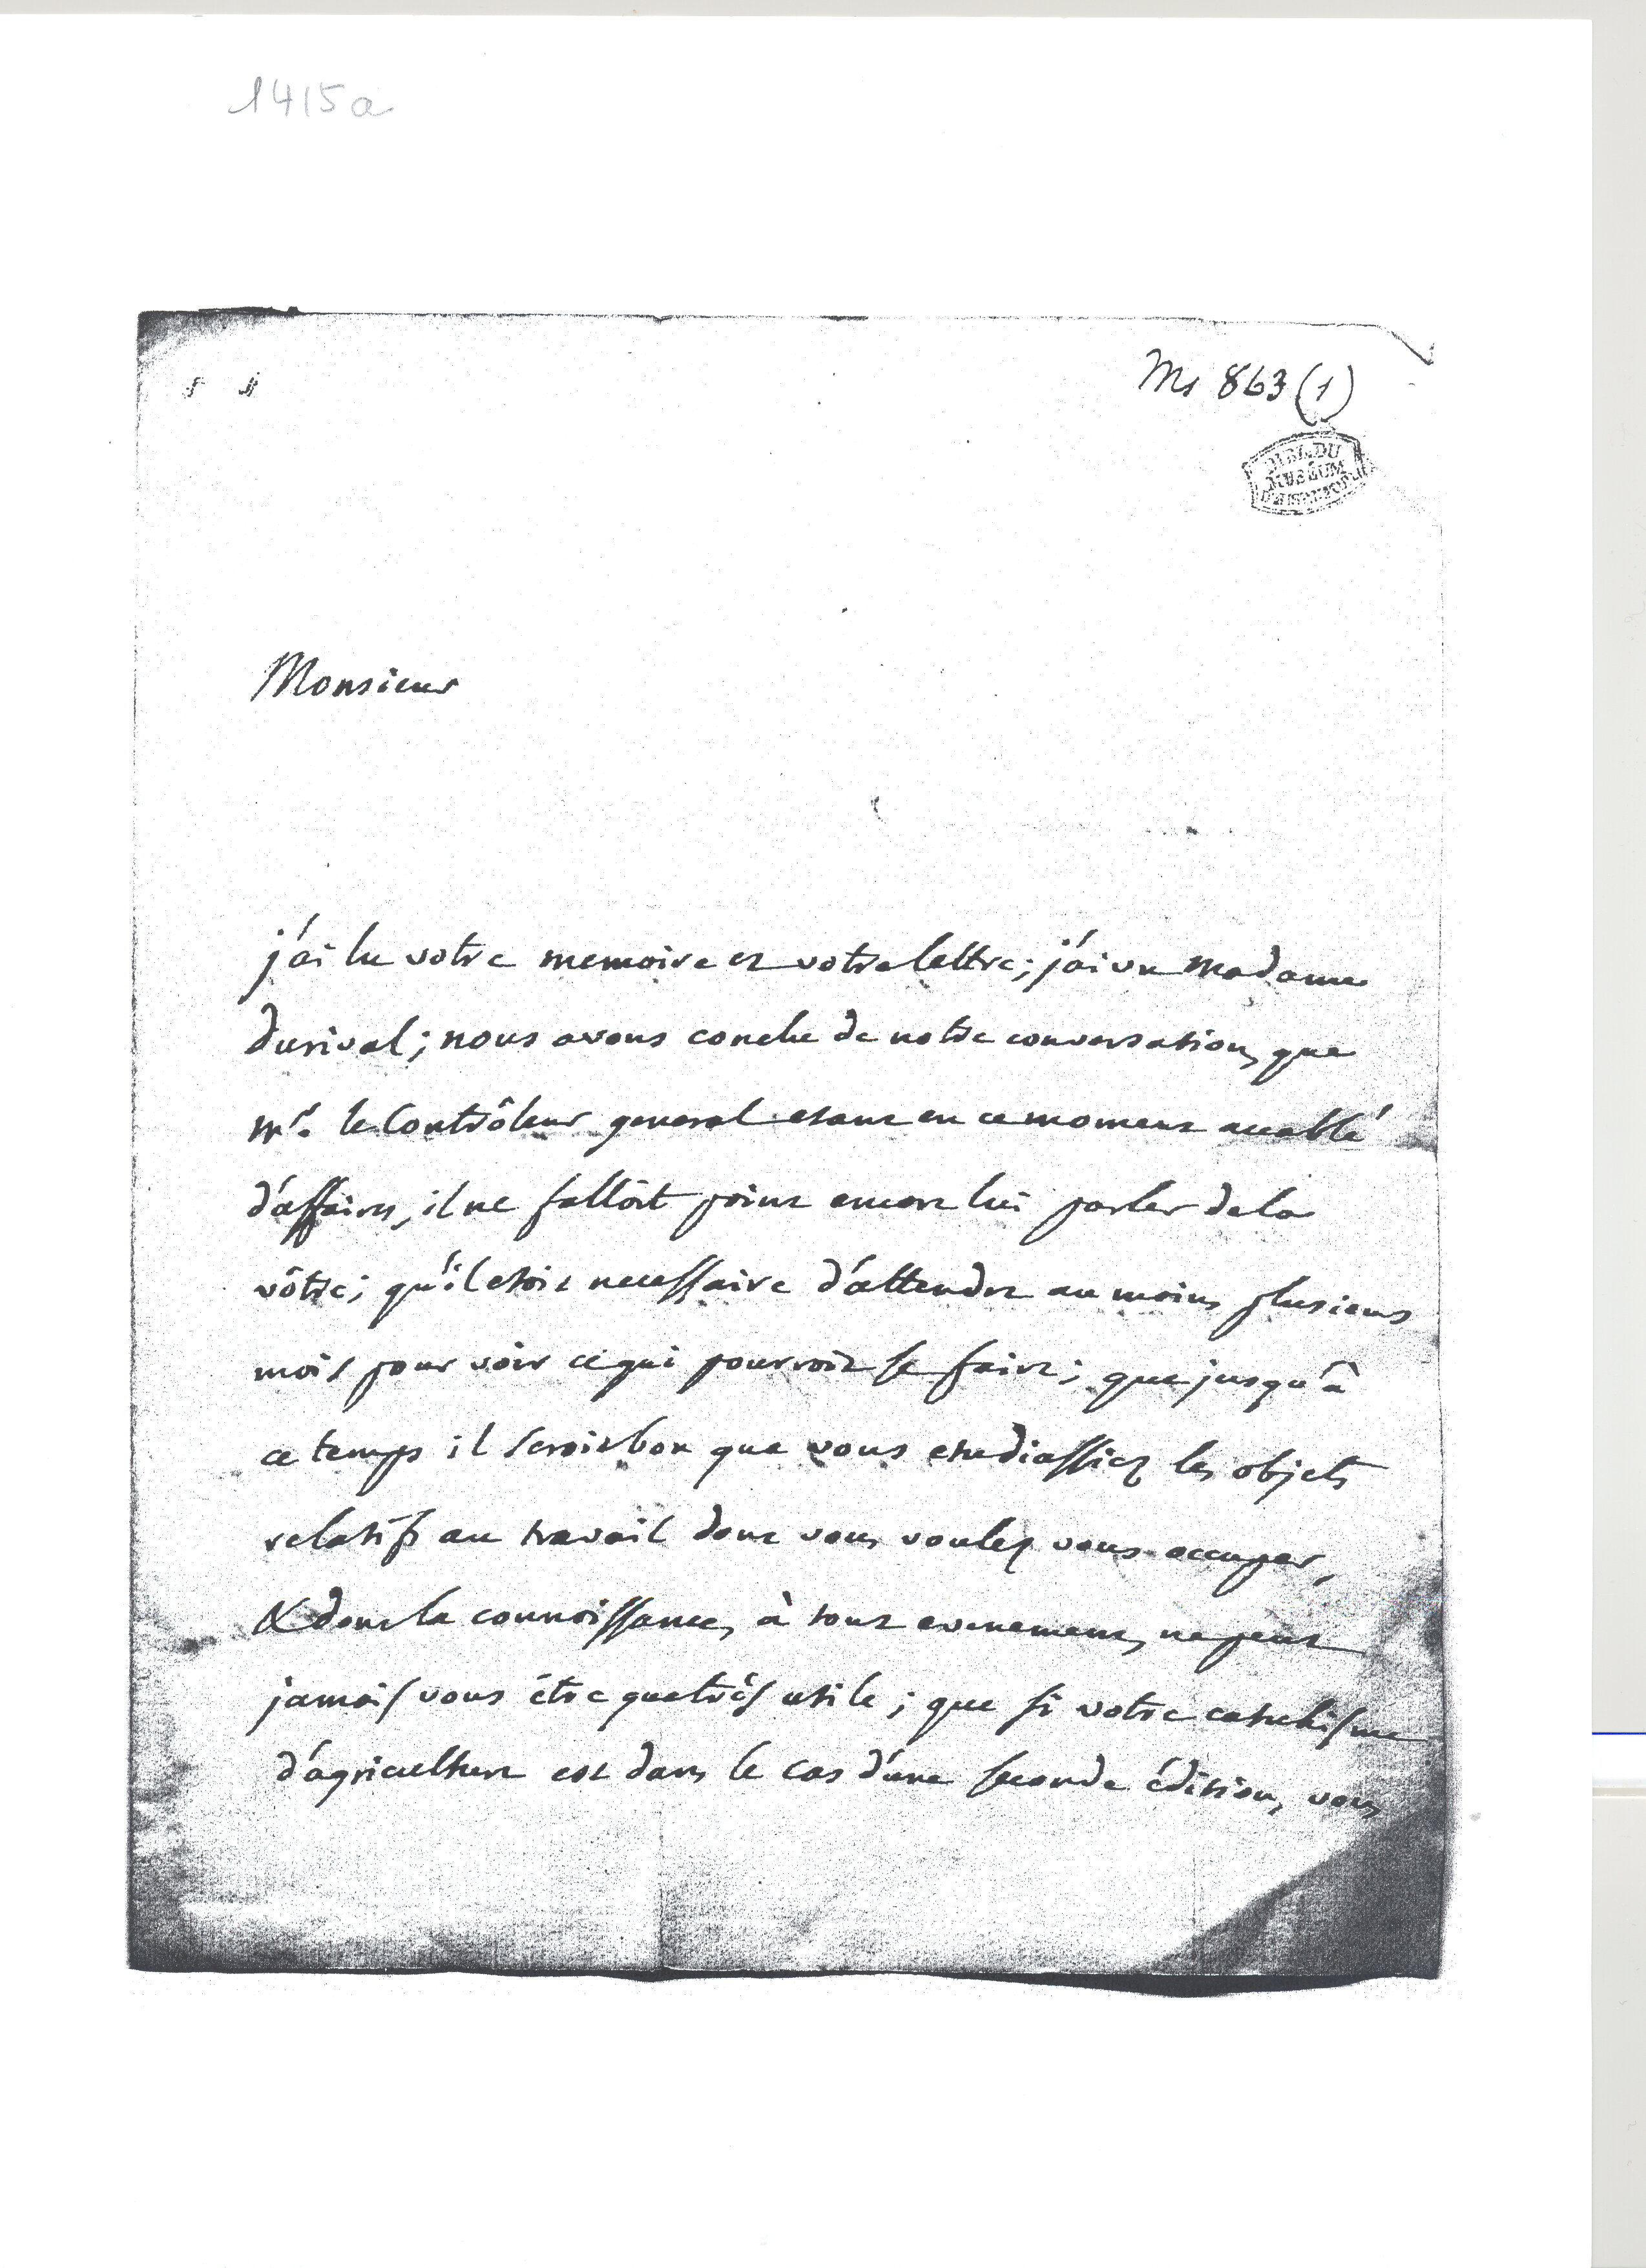 1415a
Ms 863 (1)
BIBL. DU
MUSÉUM
Monsieur
j'ai lu votre memoire et votre lettre; j'ai vu Madame
durival; nous avons conclu de notre conversation, que
mr. le Contrôleur general etant en ce moment accablé
d'affaires, il ne falloit point encore lui parler de la
vôtre; qu'il etoit necessaire d'attendre au moins plusieurs
mois pour voir ce qui pourroit se faire; que jusqu'à
ce temps il seroit bon que vous etudiassiez les objets
relatifs au travail dont vous voulez vous occuper,
& dont la connoissance, à tout evenement, ne peut
jamais vous être que très utile; que si votre catechisme
d'agriculture est dans le cas d'une seconde édition, vous